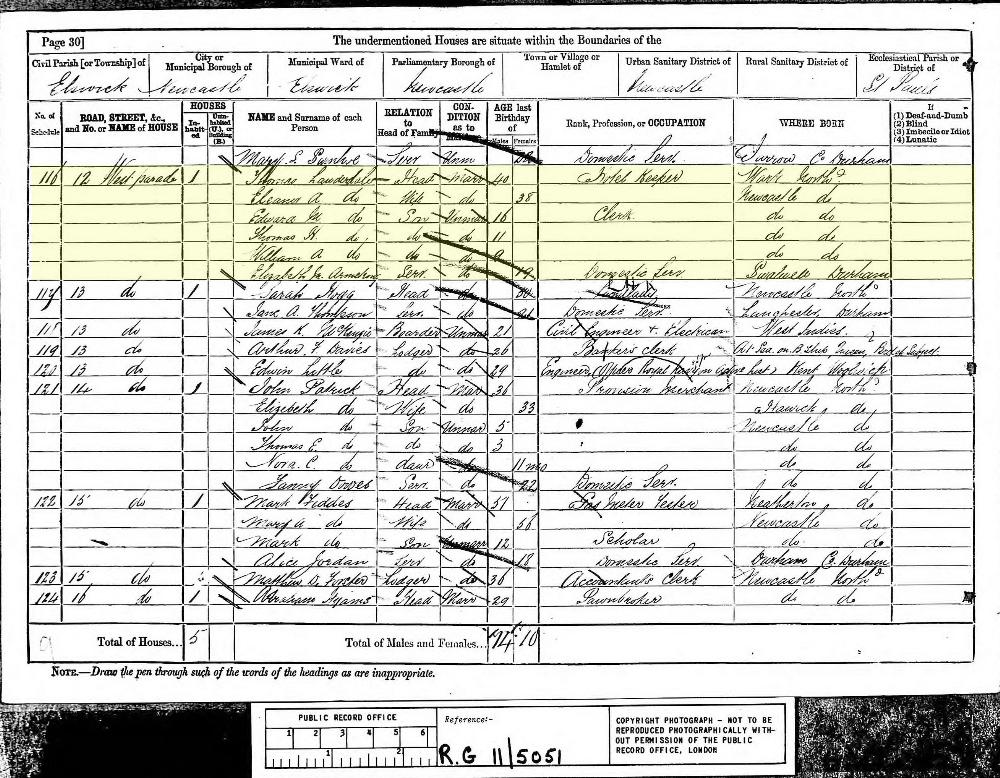 Page 30] The undermentioned Houses are situate within the Boundaries of the
Civil Parish [or Township] of City or Municipal Borough of Municipal Ward of Parliamentary Borough of Town or Village or Hamlet of Urban Sanitary District of Rural Sanitary District of Ecclesiastical Parish or District of
Elswick Newcastle Elswick Newcastle Newcastle St Pauls
No. of Schedule ROAD, STREET, &c., and No. or NAME of HOUSE HOUSES In-habit-ed Unin-habited (U.), or Building (B.) NAME and Surname of each Person RELATION to Head of Family CON-DITION as to Marriage AGE last Birthday of Males Females Rank, Profession, or OCCUPATION WHERE BORN If (1) Deaf-and-Dumb (2) Blind (3) Imbecile or Idiot (4) Lunatic
Mary Serv Unm Domestic Serv. Jarrow C. Durham
116 12 West parade 1 Thomas Lauderdale Head Marr 40 Keeper Wark Northd
Eleanor A do Wife do 38 Newcastle do
Edward do Son Unmar 16 Clerk do do
Thomas H. do do do 11 do do
William A do do do 9 do do
Elizabeth Armstrong Serv. do 19 Domestic Serv Swalwell Durham
117 13 do 1 Sarah Hogg Head Landlady Newcastle Northd
Jane A. Thompson Serv. do 21 Domestic Serv. Lanchester, Durham
118 13 do James K. McKenzie Boarder Unmar 21 Civil Engineer & Electrician West Indies
119 13 do Arthur F Davies Lodger do 26 Bankers clerk At Sea on British Subject
120 13 do Edwin Little do do 29 Engineer Royal Kent Woolwich
121 14 do 1 John Patrick Head Mar 36 Provision Merchant Newcastle Northd
Elizabeth do Wife do 33 do
John do Son Unmar 5 Newcastle do
Thomas E. do do do 3 do do
Nora C. do daur do 11 mo do do
Fanny Dowes Serv. do 22 Domestic Serv. do do
122 15 do 1 Mark Fiddes Head Marr 57 Gas Meter Tester Netherton do
Mary A do Wife do 56 Newcastle do
Mark do Son Unmarr 12 Scholar do do
Alice Jordan Serv do 18 Domestic Serv. Durham C. Durham
123 15 do Matthew D. Forster Lodger do 36 Accountants Clerk Newcastle Northd
124 16 do 1 Abraham Hyams Head Marr 29 Pawnbroker do do
9 Total of Houses... 5 Total of Males and Females... 14 10
NOTE.—Draw the pen through such of the words of the headings as are inappropriate.
PUBLIC RECORD OFFICE
1 2 3 4 5 6
1 2
Reference:-
R.G 11/5051
COPYRIGHT PHOTOGRAPH - NOT TO BE
REPRODUCED PHOTOGRAPHICALLY WITH-
OUT PERMISSION OF THE PUBLIC
RECORD OFFICE, LONDON